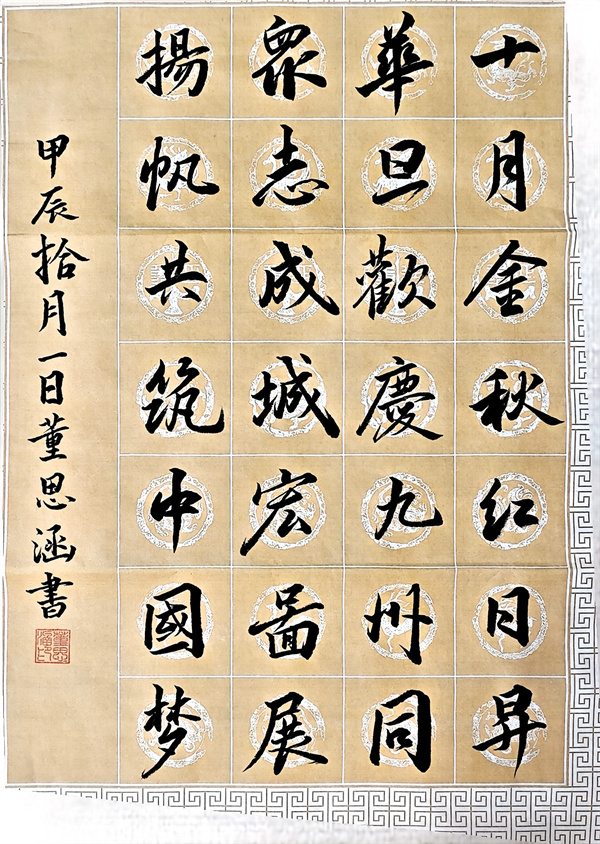 十月金秋红日昇
華旦歡慶九州同
眾志成城宏圖展
揚帆共筑中國梦
甲辰拾月一日董思涵書
董思涵印